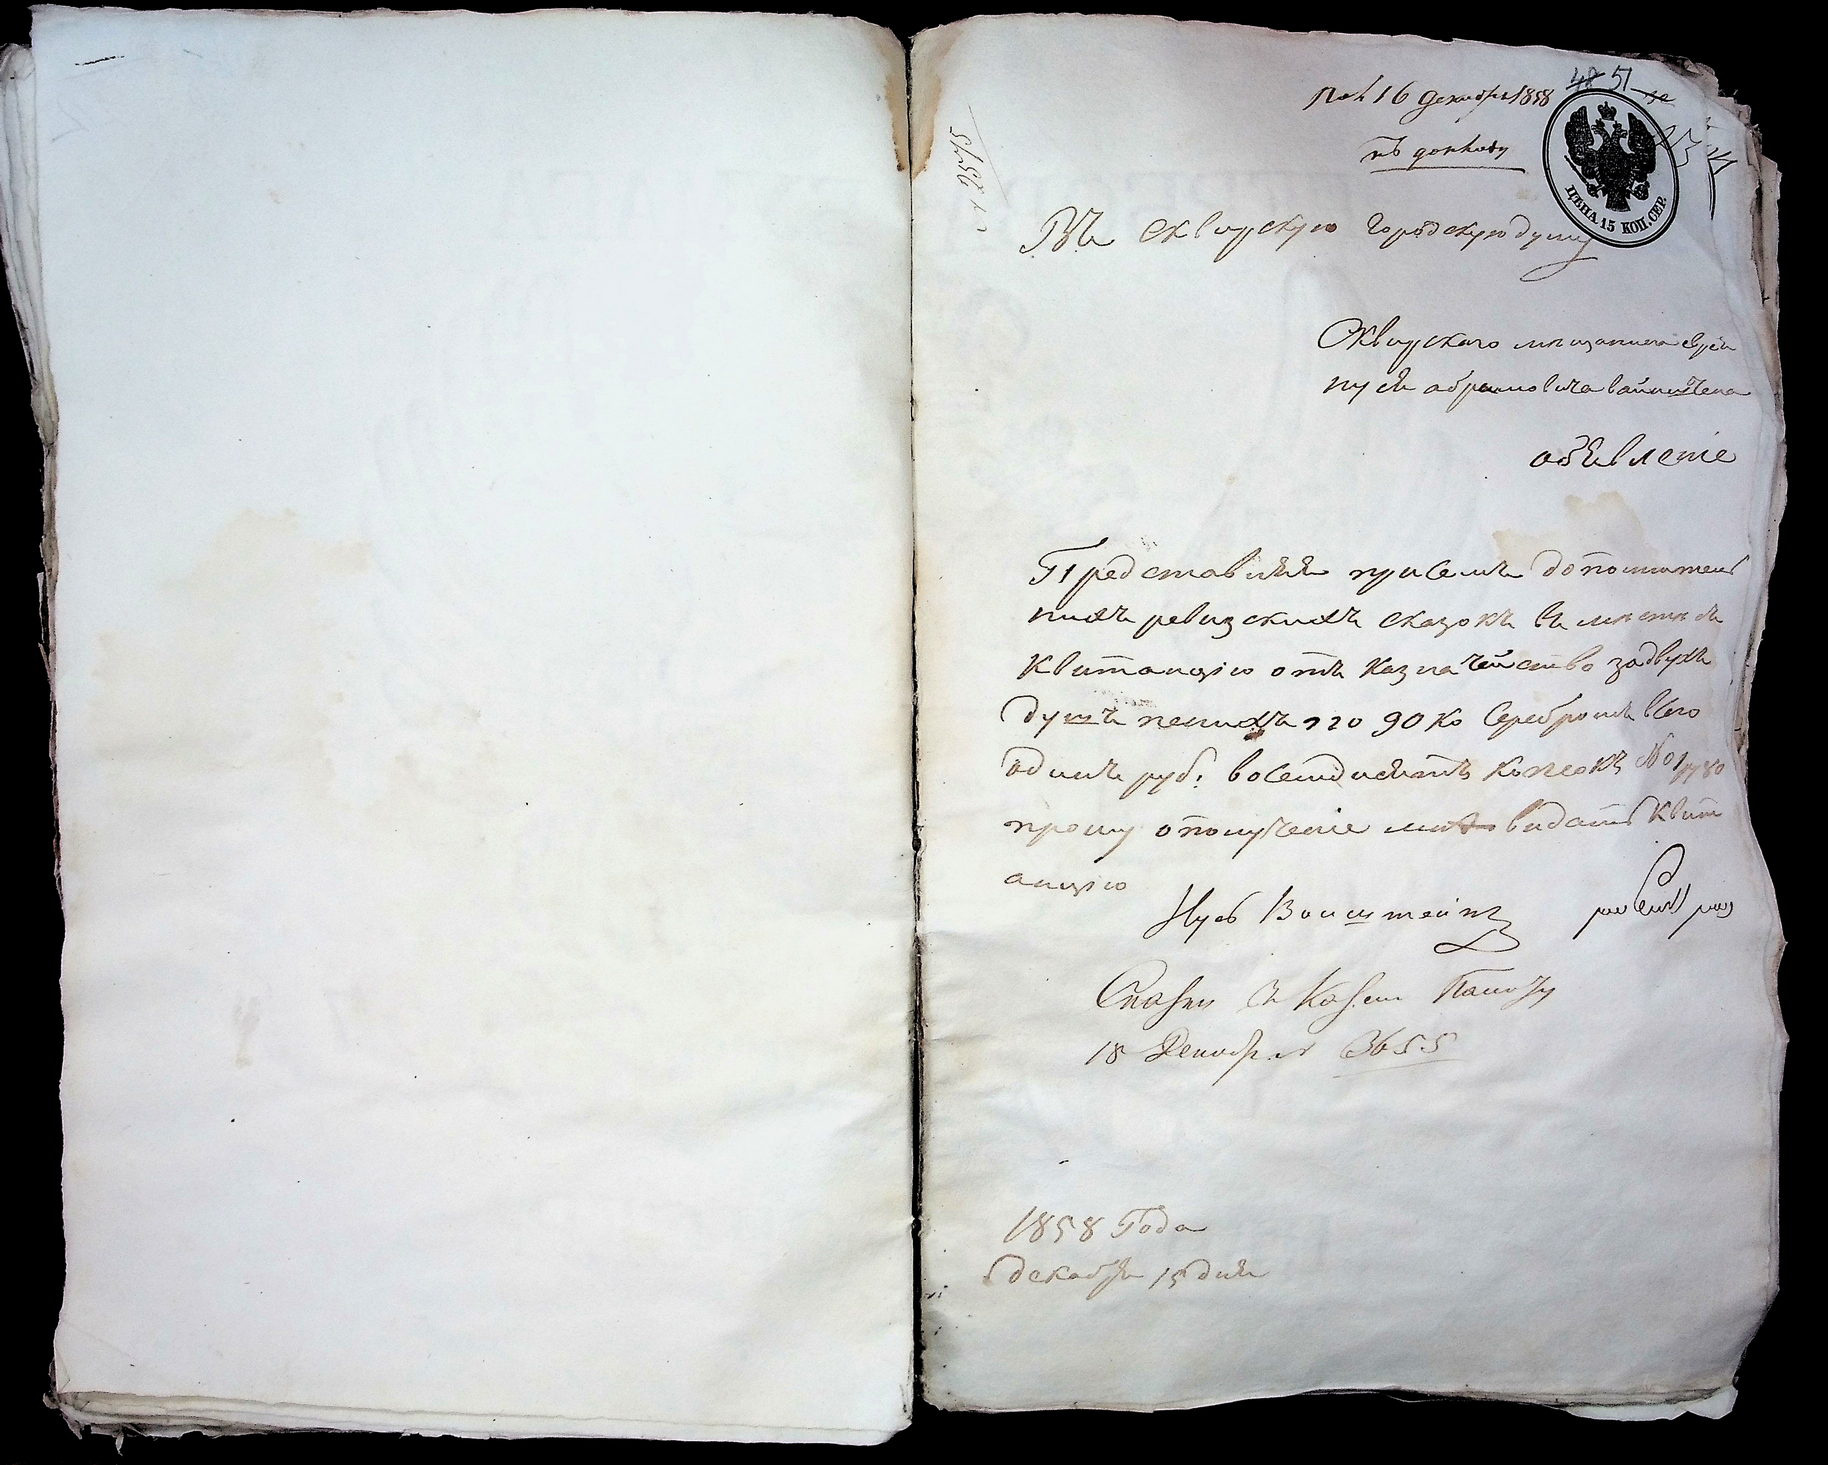 48 51
Пол 16 Декабря 1858
къ докладу
ЦѢНА 15 КОП. СЕР.
Въ сквирскую городскую думу
Сквирского мищанина еврея
нуся абрамовича вайнштена
обявленіе
Представляя присемъ дополнител
нихъ ревизскихъ сказокъ в мистѣ
квитанцію отъ казначейство задвухъ
душъ пенихъ по 90 ко Серебромъ всего
одинъ руб: восемдисятъ копеокъ № 01780
прошу ополученіе мнѣ видать квит
анцію
Нусь Ваинштейнъ
Сказки в Казен Палату
18 Декабря 3655
1858 Года
декабря 15 дня